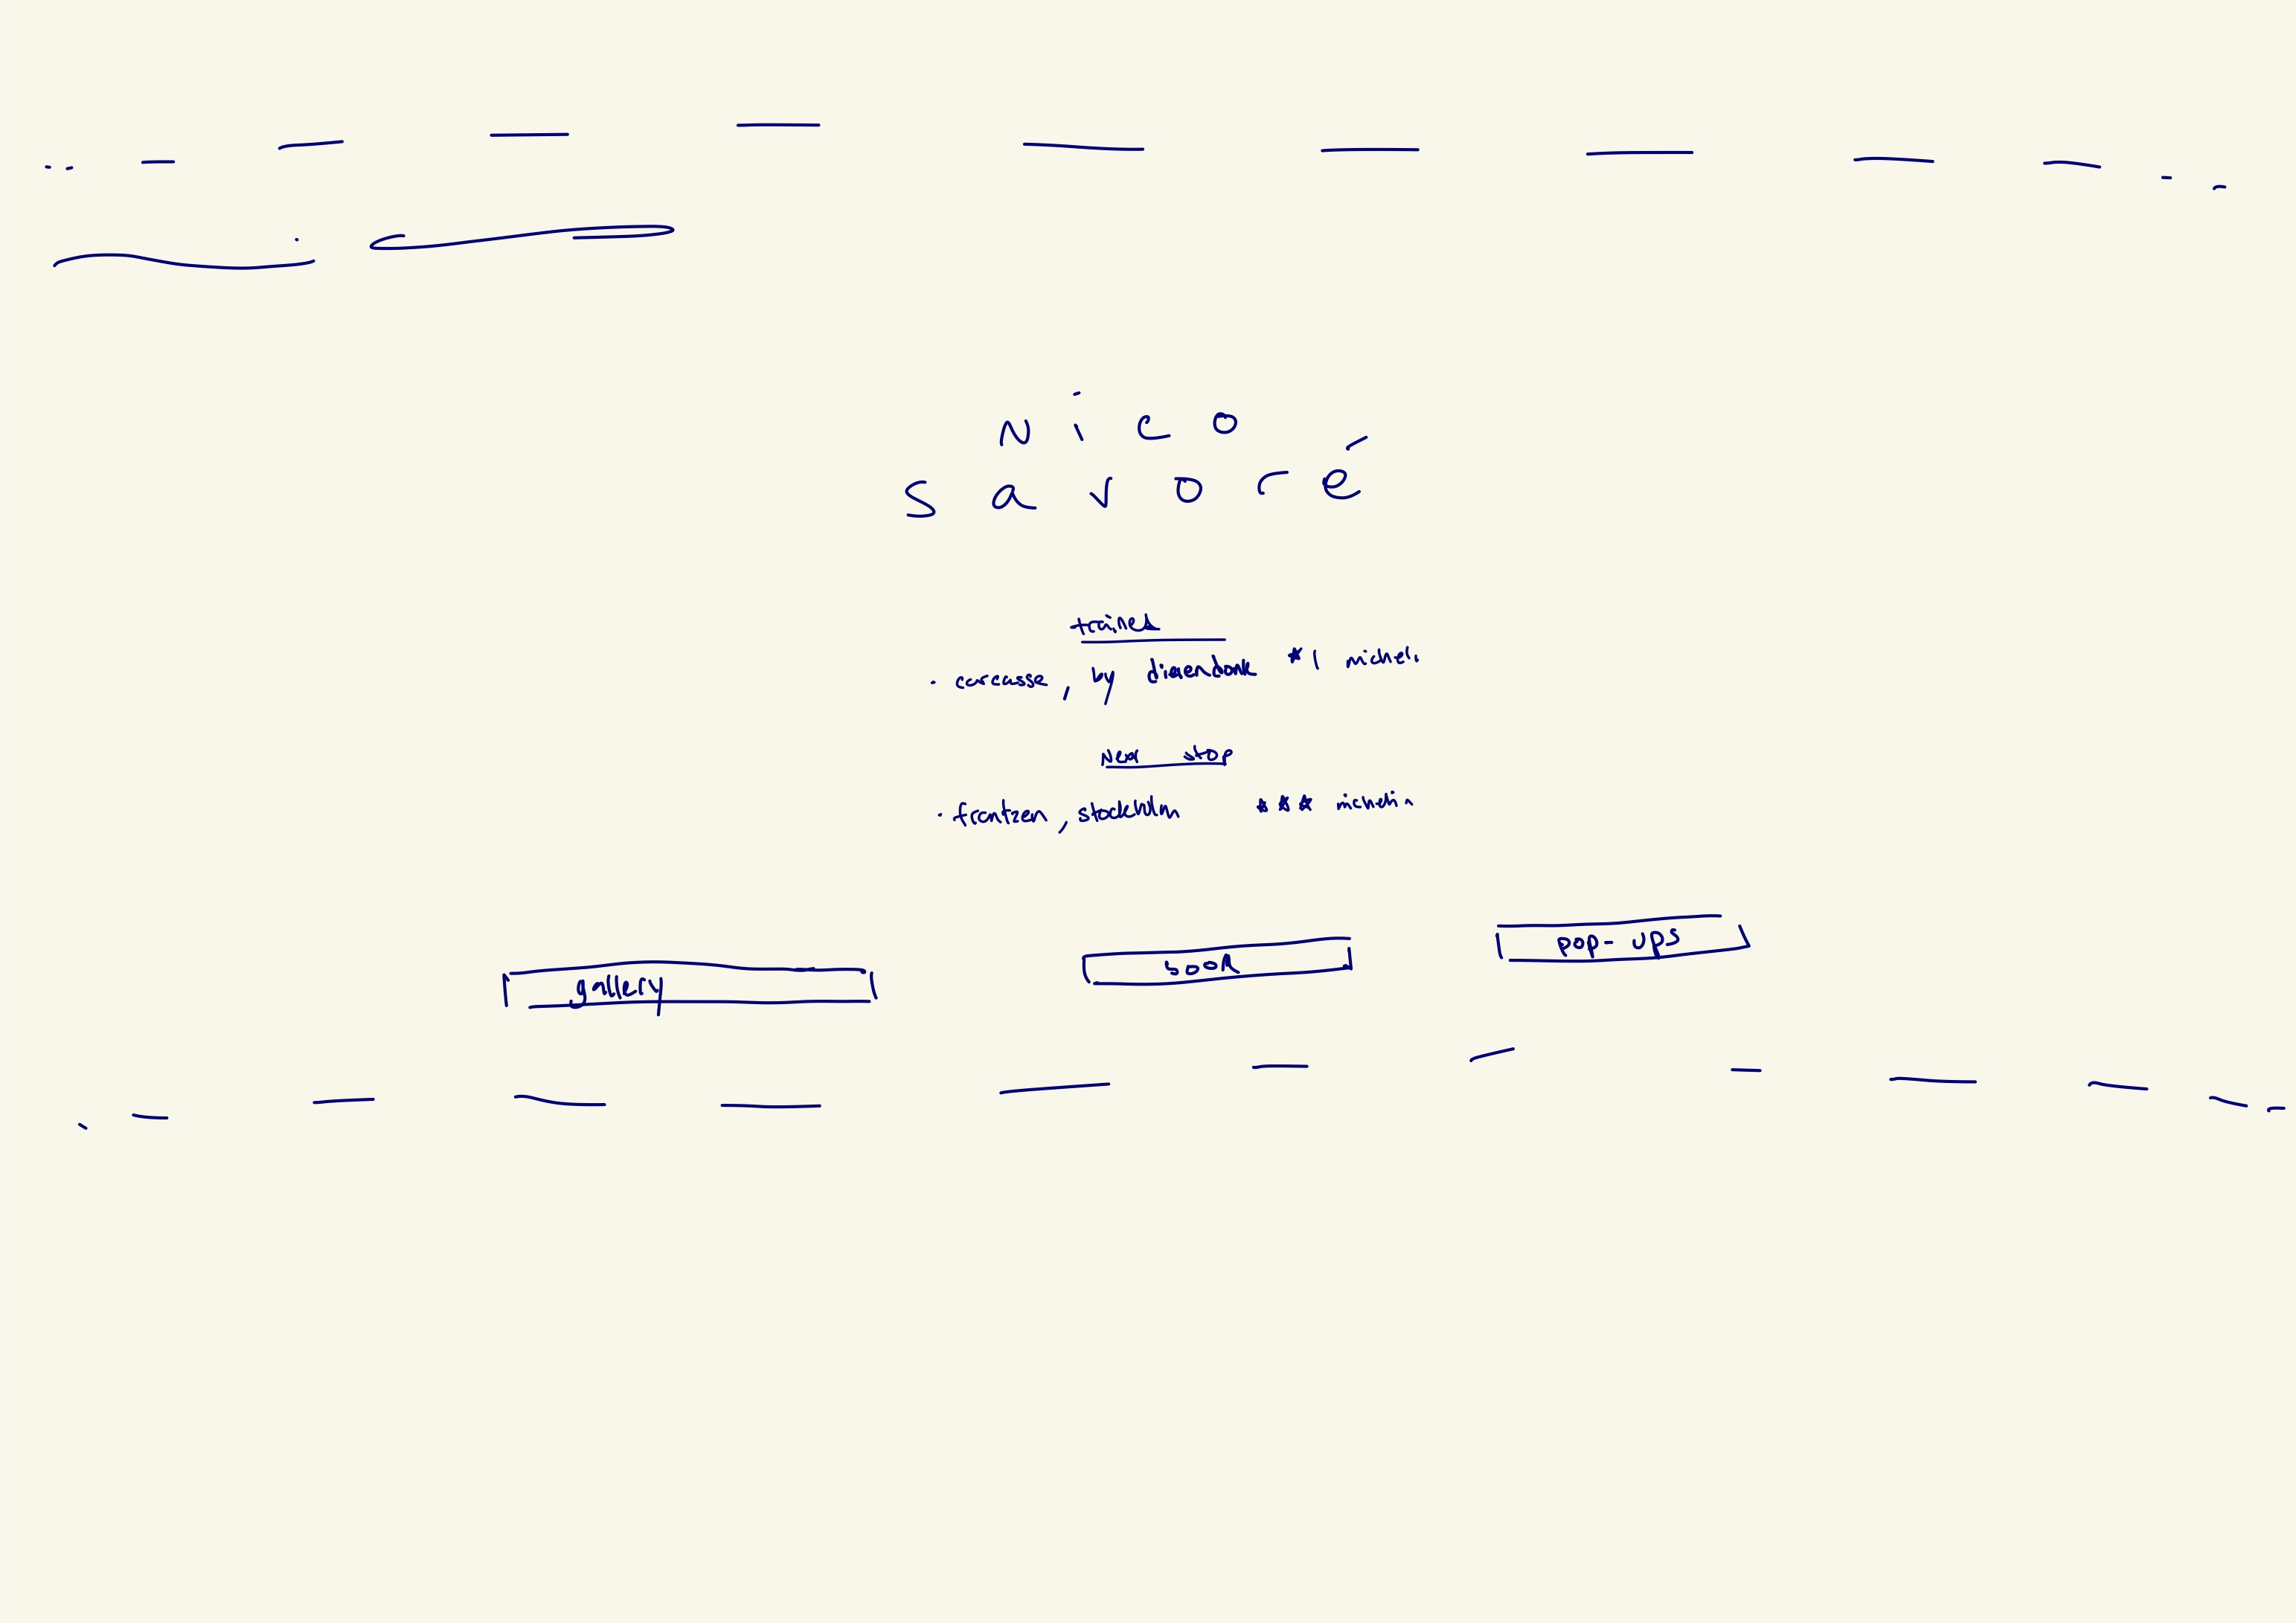 Nico
savoré
trained
• carcasse, by dierendonk ★1 michelin
Next stop
• frantzen, stockholm ★★★ michelin
gallery
book
pop-ups